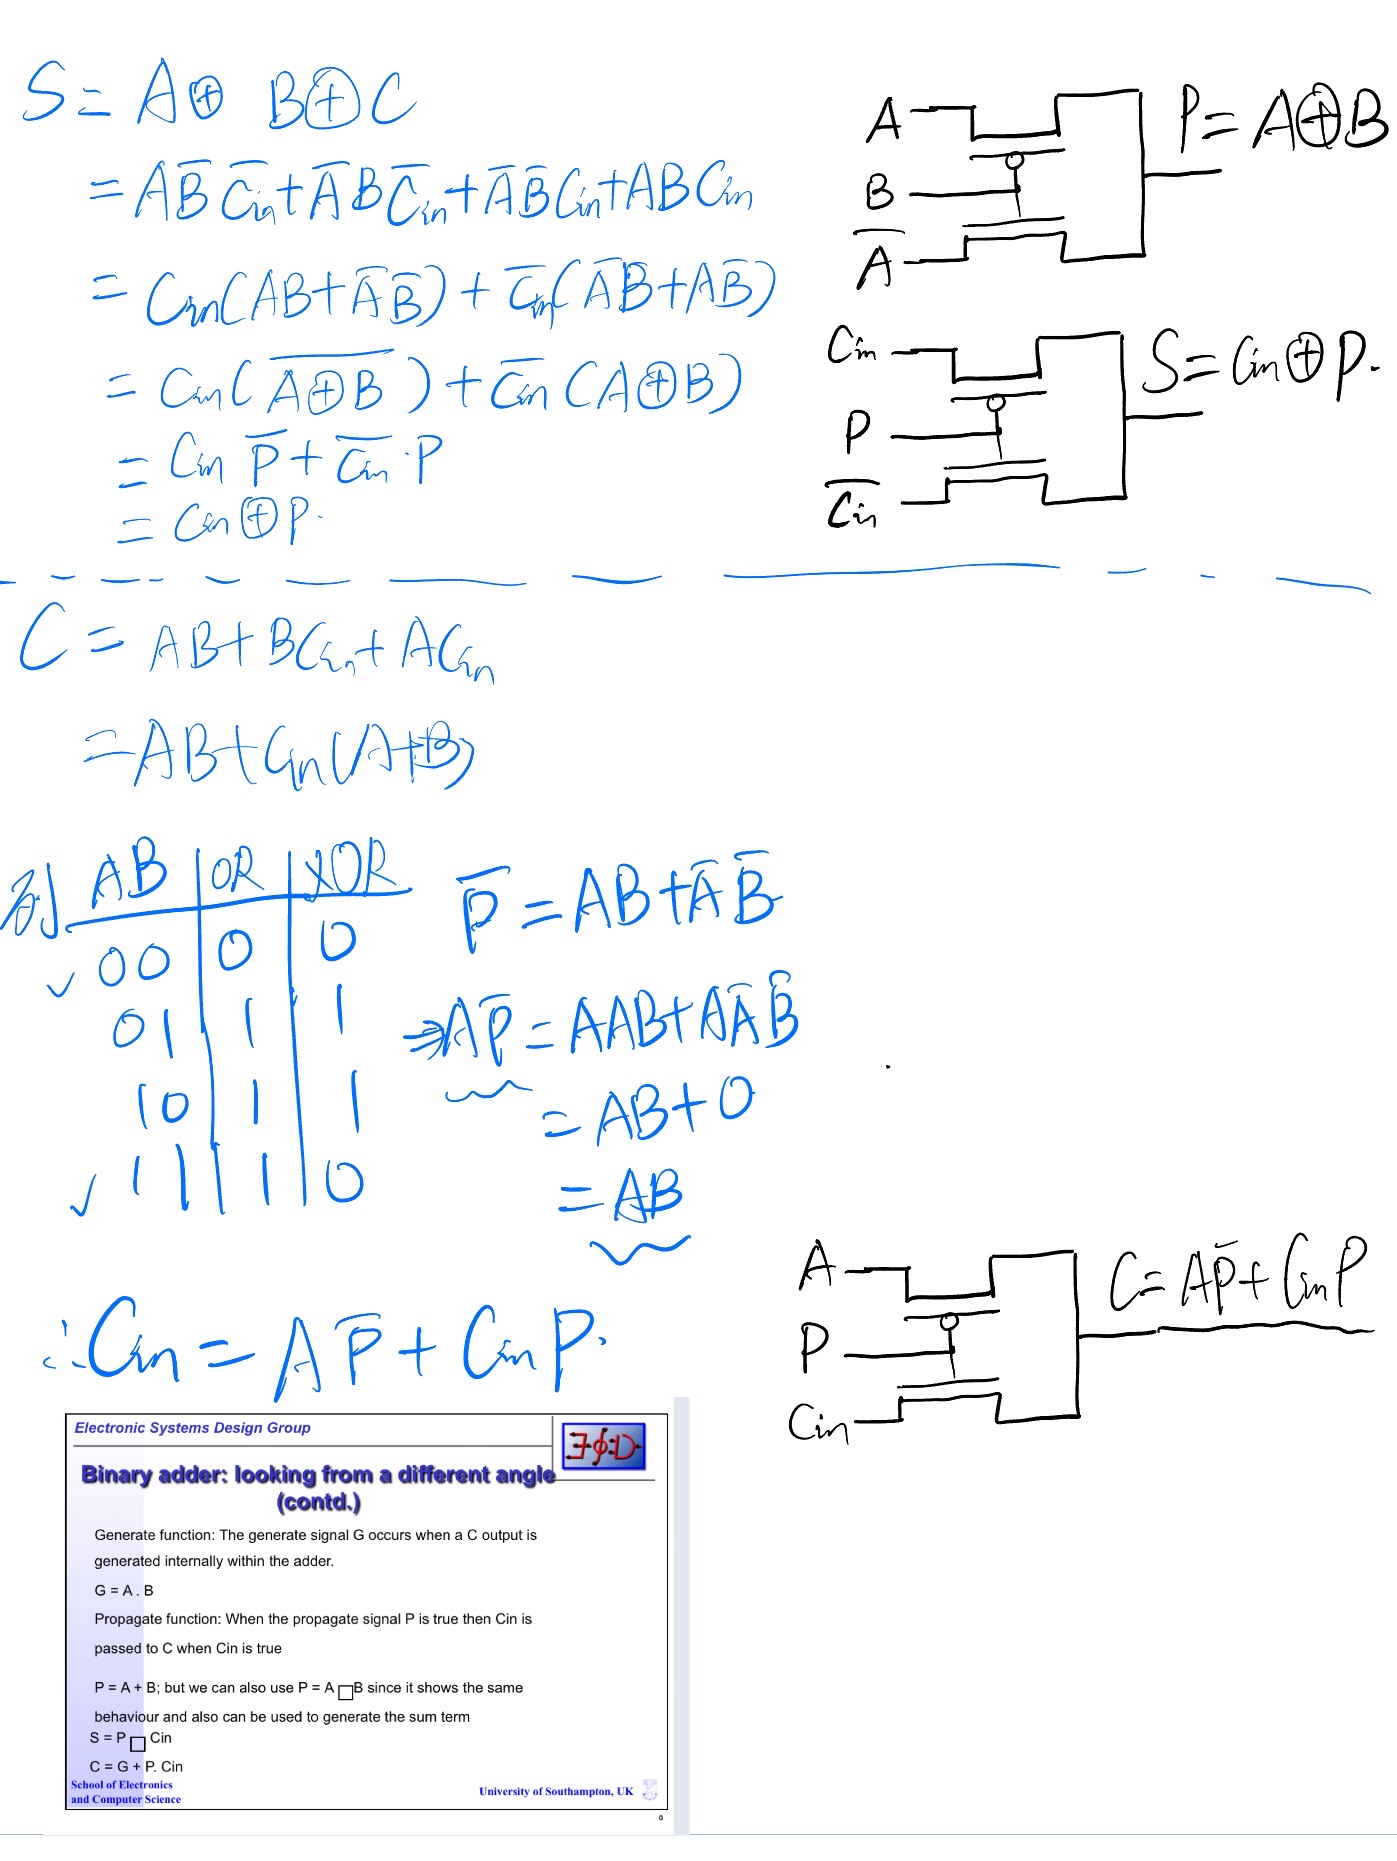 S = A ⊕ B ⊕ C
= AB̅C̅in + A̅BC̅in + A̅B̅Cin + ABCin
= Cin(AB + A̅B̅) + C̅in(A̅B + AB̅)
= Cin(A̅⊕̅B̅) + C̅in(A⊕B)
= Cin P̅ + C̅in · P
= Cin ⊕ P.
A
B
A̅
P = A⊕B
Cin
P
C̅in
S = Cin ⊕ P.
C = AB + BCin + ACin
= AB + Cin(A+B)
AB | OR | XOR
✓ 00 | 0 | 0
01 | 1 | 1
10 | 1 | 1
✓ 11 | 1 | 0
P̅ = AB + A̅B̅
⇒ AP̅ = AAB + AA̅B̅
= AB + 0
= AB
∴ Cin = AP̅ + Cin P.
A
P
Cin
C = AP̅ + Cin P
Electronic Systems Design Group
Binary adder: looking from a different angle
(contd.)
Generate function: The generate signal G occurs when a C output is
generated internally within the adder.
G = A . B
Propagate function: When the propagate signal P is true then Cin is
passed to C when Cin is true
P = A + B; but we can also use P = A □B since it shows the same
behaviour and also can be used to generate the sum term
S = P □ Cin
C = G + P. Cin
School of Electronics
and Computer Science
University of Southampton, UK
0